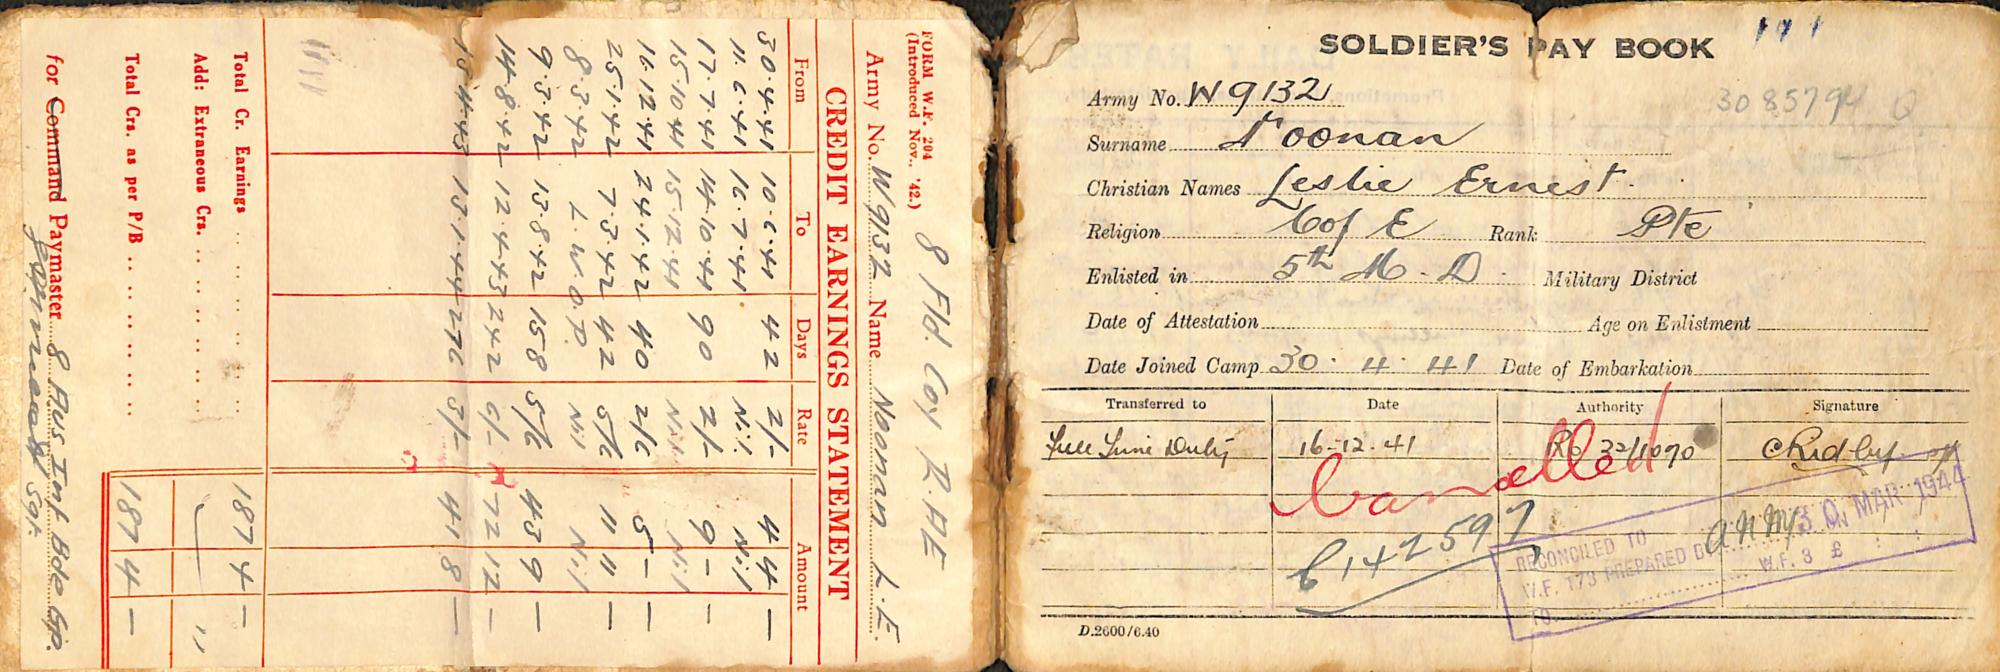 FORM W.F. 204
(Introduced Nov., '42.)
8 Fld. Coy R.A.E
Army No. W9132 Name Noonan L.E.
CREDIT EARNINGS STATEMENT
From To Days Rate Amount
30.4.41 10.6.41 42 2/- 4 4 —
11.6.41 16.7.41 Nil Nil
17.7.41 14.10.41 90 2/- 9 — —
15.10.41 15.12.41 Nil Nil
16.12.41 24.1.42 40 2/6 5 — —
25.1.42 7.3.42 42 5/6 11 11 —
8.3.42 L.W.O.P. Nil Nil
9.3.42 13.8.42 158 5/6 43 9 —
14.8.42 12.4.43 242 6/- 72 12 —
13.4.43 13.1.44 276 3/- 41 8 —
Total Cr. Earnings .. .. .. .. .. 187 4 —
Add: Extraneous Crs. .. .. .. ..
Total Crs. as per P/B .. .. .. .. 187 4 —
for Command Paymaster 8 Aus Inf Bde Gp.
Sgt.
SOLDIER'S PAY BOOK
3085794 Q
Army No. W9132
Surname Noonan
Christian Names Leslie Ernest.
Religion C of E Rank Pte
Enlisted in 5th M.D. Military District
Date of Attestation Age on Enlistment
Date Joined Camp 30.4.41 Date of Embarkation
Transferred to Date Authority Signature
Full Time Duty 16-12-41 Ro 32/1070 C Ridley
Cancelled
30 MAR 1944
6142597
RECONCILED TO
W.F. 173 PREPARED W.F. 3 £
TO
D.2600/6.40